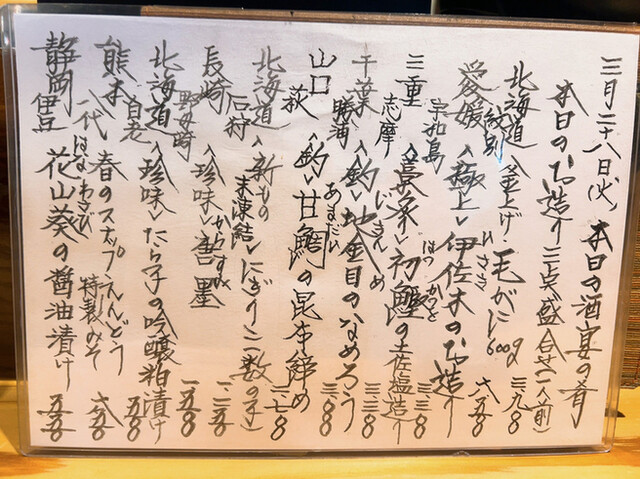 三月二十八日(火) 本日の酒宴の肴
本日のお造り 三点盛合せ(一人前)
北海道 紋別 釜上げ・毛がに 600g 三、九八〇
愛媛 宇和島 〈極上〉伊佐木のお造り いさき 六五〇
三重 志摩 初鰹の土佐塩造り はつがつお 三、三八〇
千葉 勝浦 〈釣〉地金目のなめろう じきんめ
山口 萩 〈釣〉甘鯛の昆布締め あまだい
北海道 石狩 〈新もの 未凍結〉にぎり(二数の子)
長崎 野母崎 〈珍味〉唐墨 からすみ
北海道 白老 〈珍味〉たら子の吟醸粕漬け 一五五〇
熊本 八代 春のスナップえんどう 特製みそ
静岡 伊豆 花山葵の醤油漬け はなわさび 五五〇